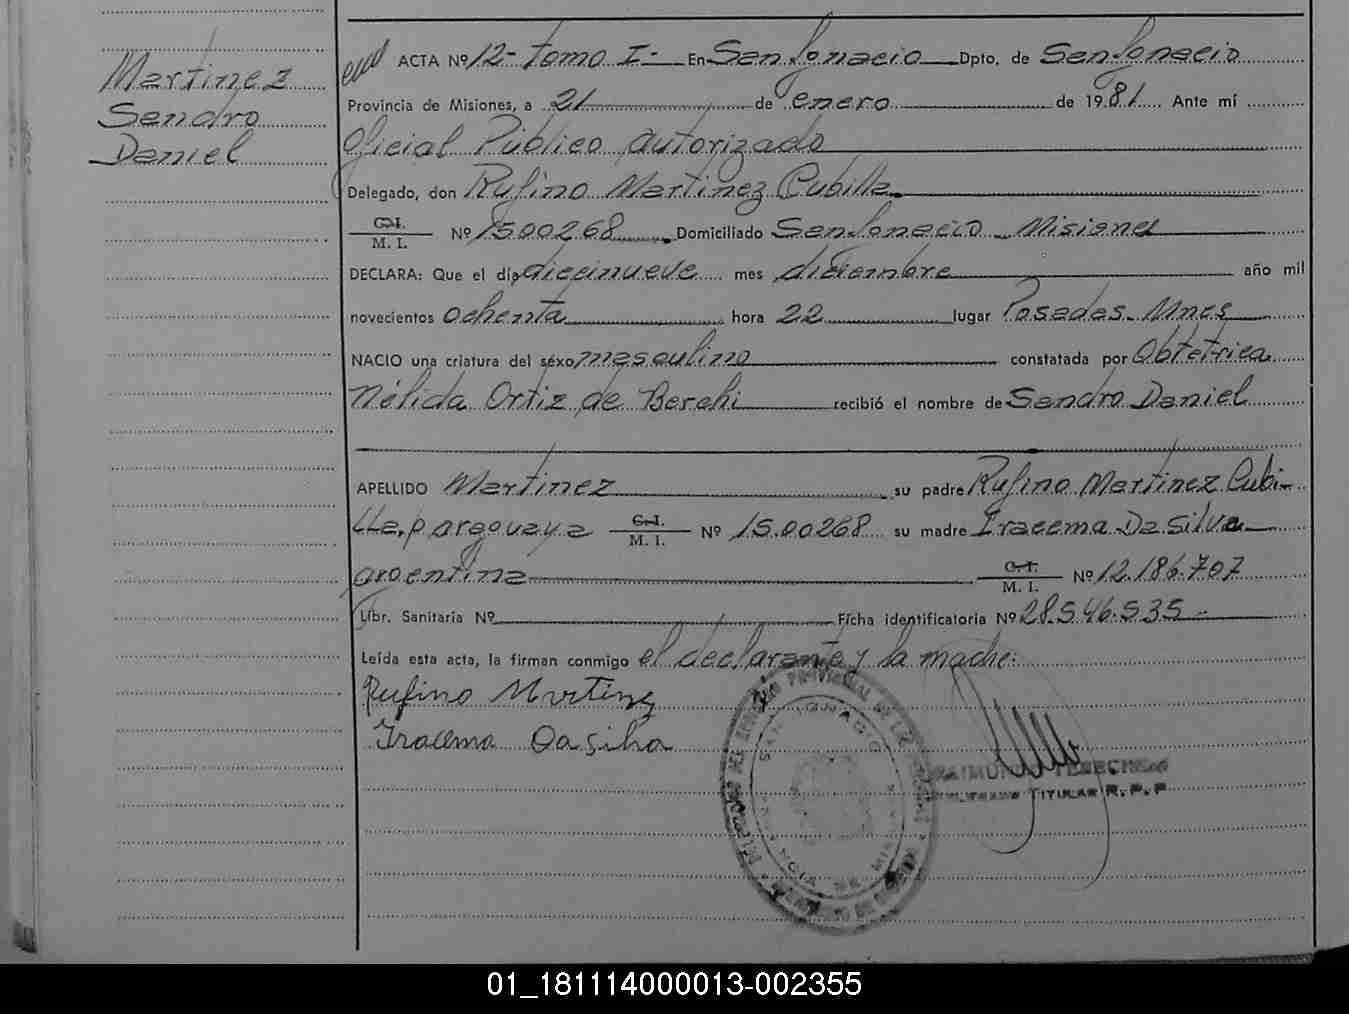 Martinez
Sandro
Daniel
ACTA Nº 12- Tomo I- En San Ignacio Dpto. de San Ignacio
Provincia de Misiones, a 21 de enero de 1981 Ante mí
Oficial Público Autorizado
Delegado, don Rufino Martinez Cubilla
C.I.
M. I. Nº 1500268 Domiciliado San Ignacio - Misiones
DECLARA: Que el día diecinueve mes diciembre año mil
novecientos ochenta hora 22 lugar Posadas. Mnes
NACIO una criatura del sexo masculino constatada por Obtetrica
Nélida Ortiz de Berchi recibió el nombre de Sandro Daniel
APELLIDO Martinez su padre Rufino Martinez Cubi-
lla, paraguaya C.I. M. I. Nº 15.00268 su madre Iracema Da Silva
argentina C.I. M. I. Nº 12.186.707
Libr. Sanitaria Nº Ficha identificatoria Nº 28.546.535-
Leída esta acta, la firman conmigo el declarante y la madre:
Rufino Martinez
Iracema Da Silva
SAN IGNACIO
TITULAR R. P. P
01_181114000013-002355